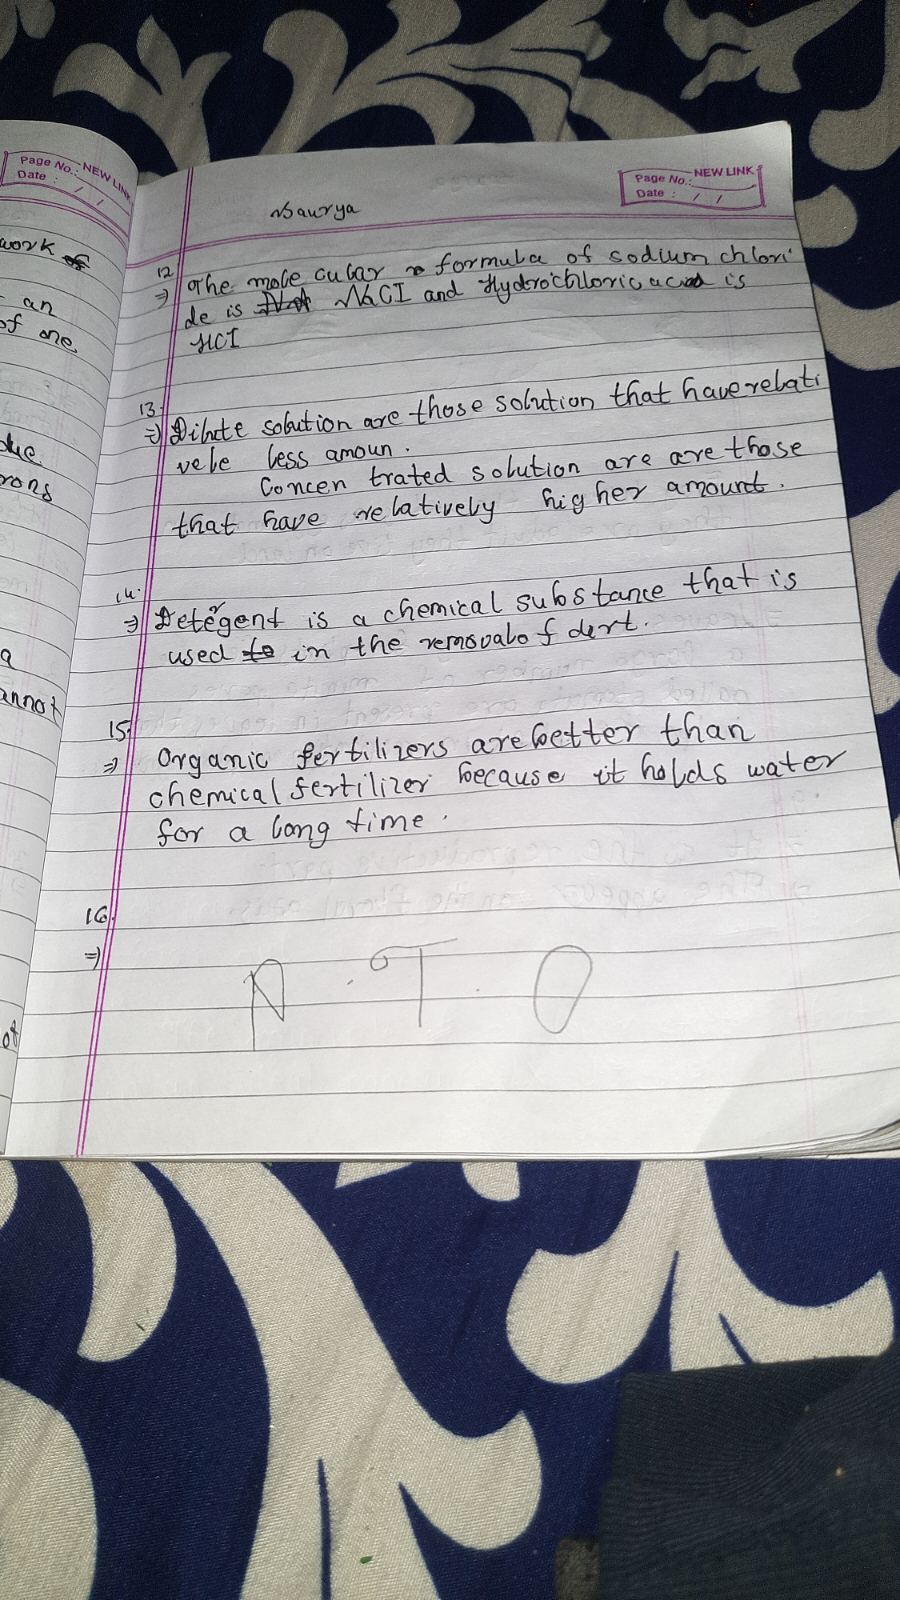 Page No.: NEW LINK
Date : / /
work
an
of one
due
rons
a
annot
ot
Page No.: NEW LINK
Date : / /
Naurya
12
⇒ The mole cular formula of sodium chlori
de is NaCl and Hydrochloric acid is
HCl
13.
⇒ Dilute solution are those solution that have relati
vele less amoun.
Concen trated solution are are those
that have relatively higher amount.
14.
⇒ Detergent is a chemical substance that is
used to in the removal of dert.
15.
⇒ Organic fertilizers are better than
chemical fertilizer because it holds water
for a long time.
16.
⇒
P.T.O